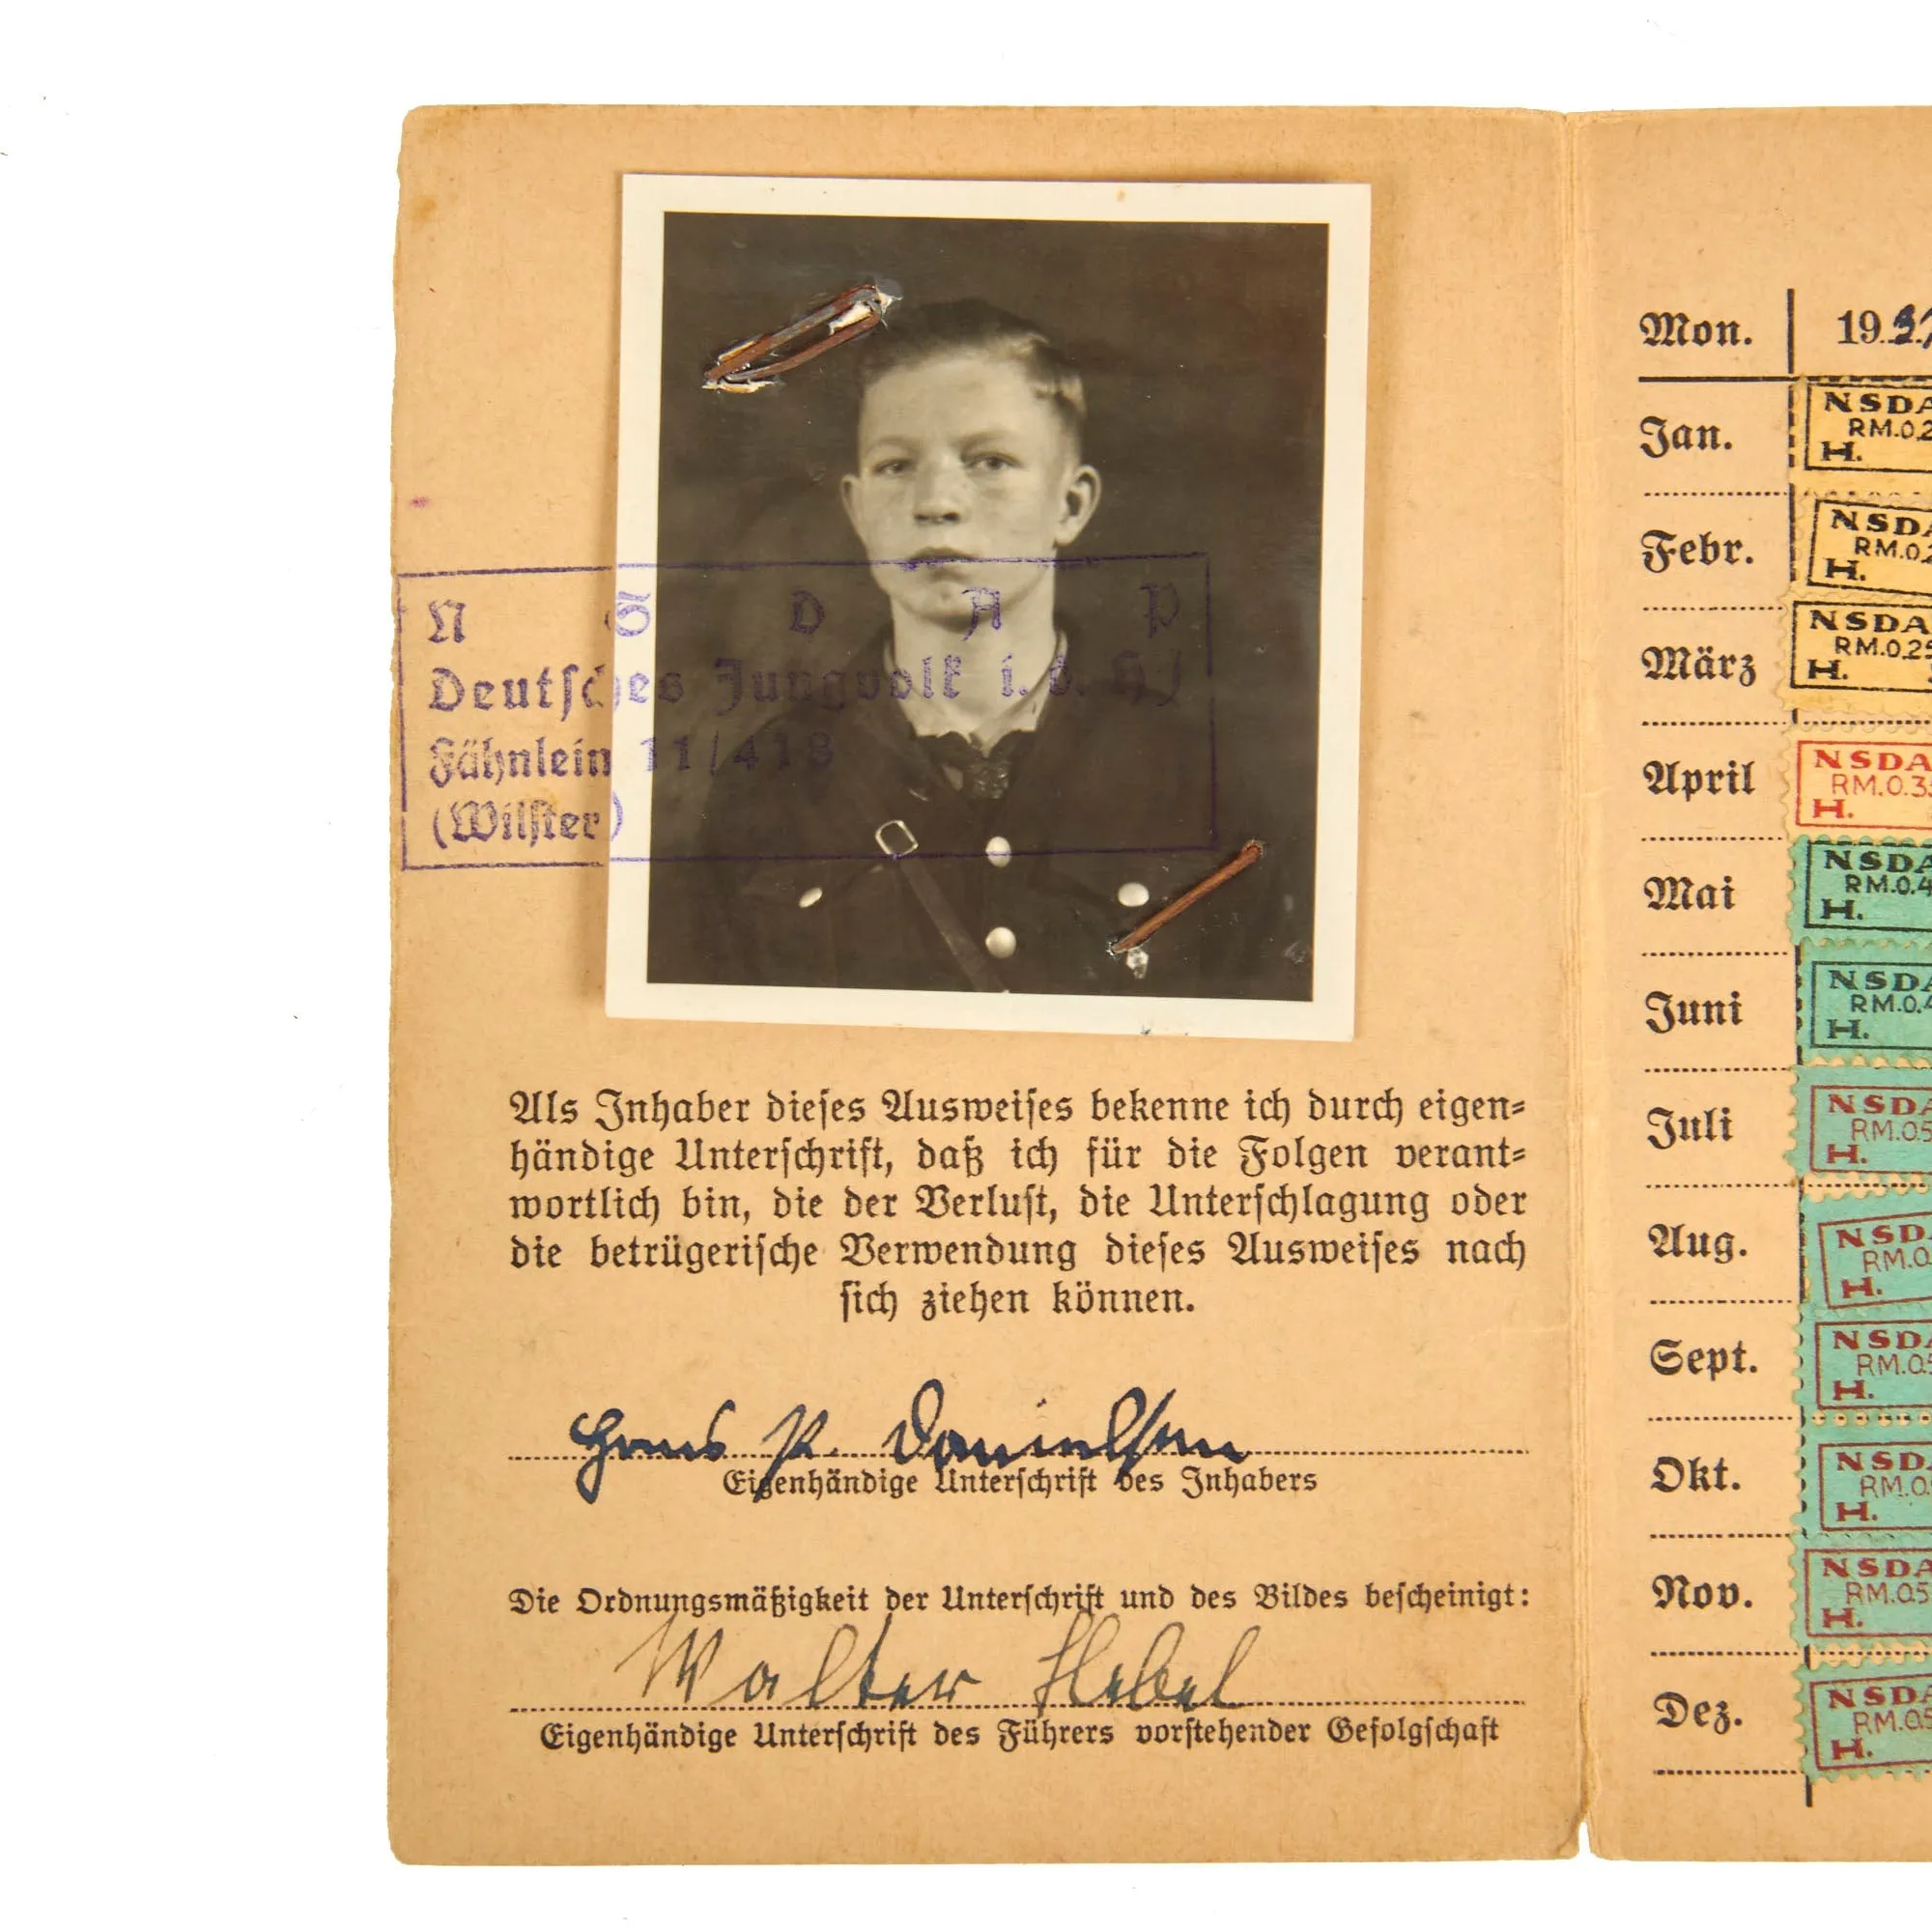 N S D A P
Deutsches Jungvolk i. d. HJ
Fähnlein 11/418
(Wilster)
Als Inhaber dieses Ausweises bekenne ich durch eigen=
händige Unterschrift, daß ich für die Folgen verant=
wortlich bin, die der Verlust, die Unterschlagung oder
die betrügerische Verwendung dieses Ausweises nach
sich ziehen können.
Hans P. Danielsen
Eigenhändige Unterschrift des Inhabers
Die Ordnungsmäßigkeit der Unterschrift und des Bildes bescheinigt:
Walter Hebel
Eigenhändige Unterschrift des Führers vorstehender Gefolgschaft
Mon. 19
Jan.
NSDA
RM.0.2
H.
Febr.
NSDA
RM.0.2
H.
März
NSDA
RM.0.25
H.
April
NSDA
RM.0.35
H.
Mai
NSDA
RM.0.4
H.
Juni
NSDA
RM.0.4
H.
Juli
NSDA
RM.0.5
H.
Aug.
NSDA
RM.0.
H.
Sept.
NSDA
RM.0.5
H.
Okt.
NSDA
RM.0.
H.
Nov.
NSDA
RM.0.5
H.
Dez.
NSDA
RM.0.5
H.